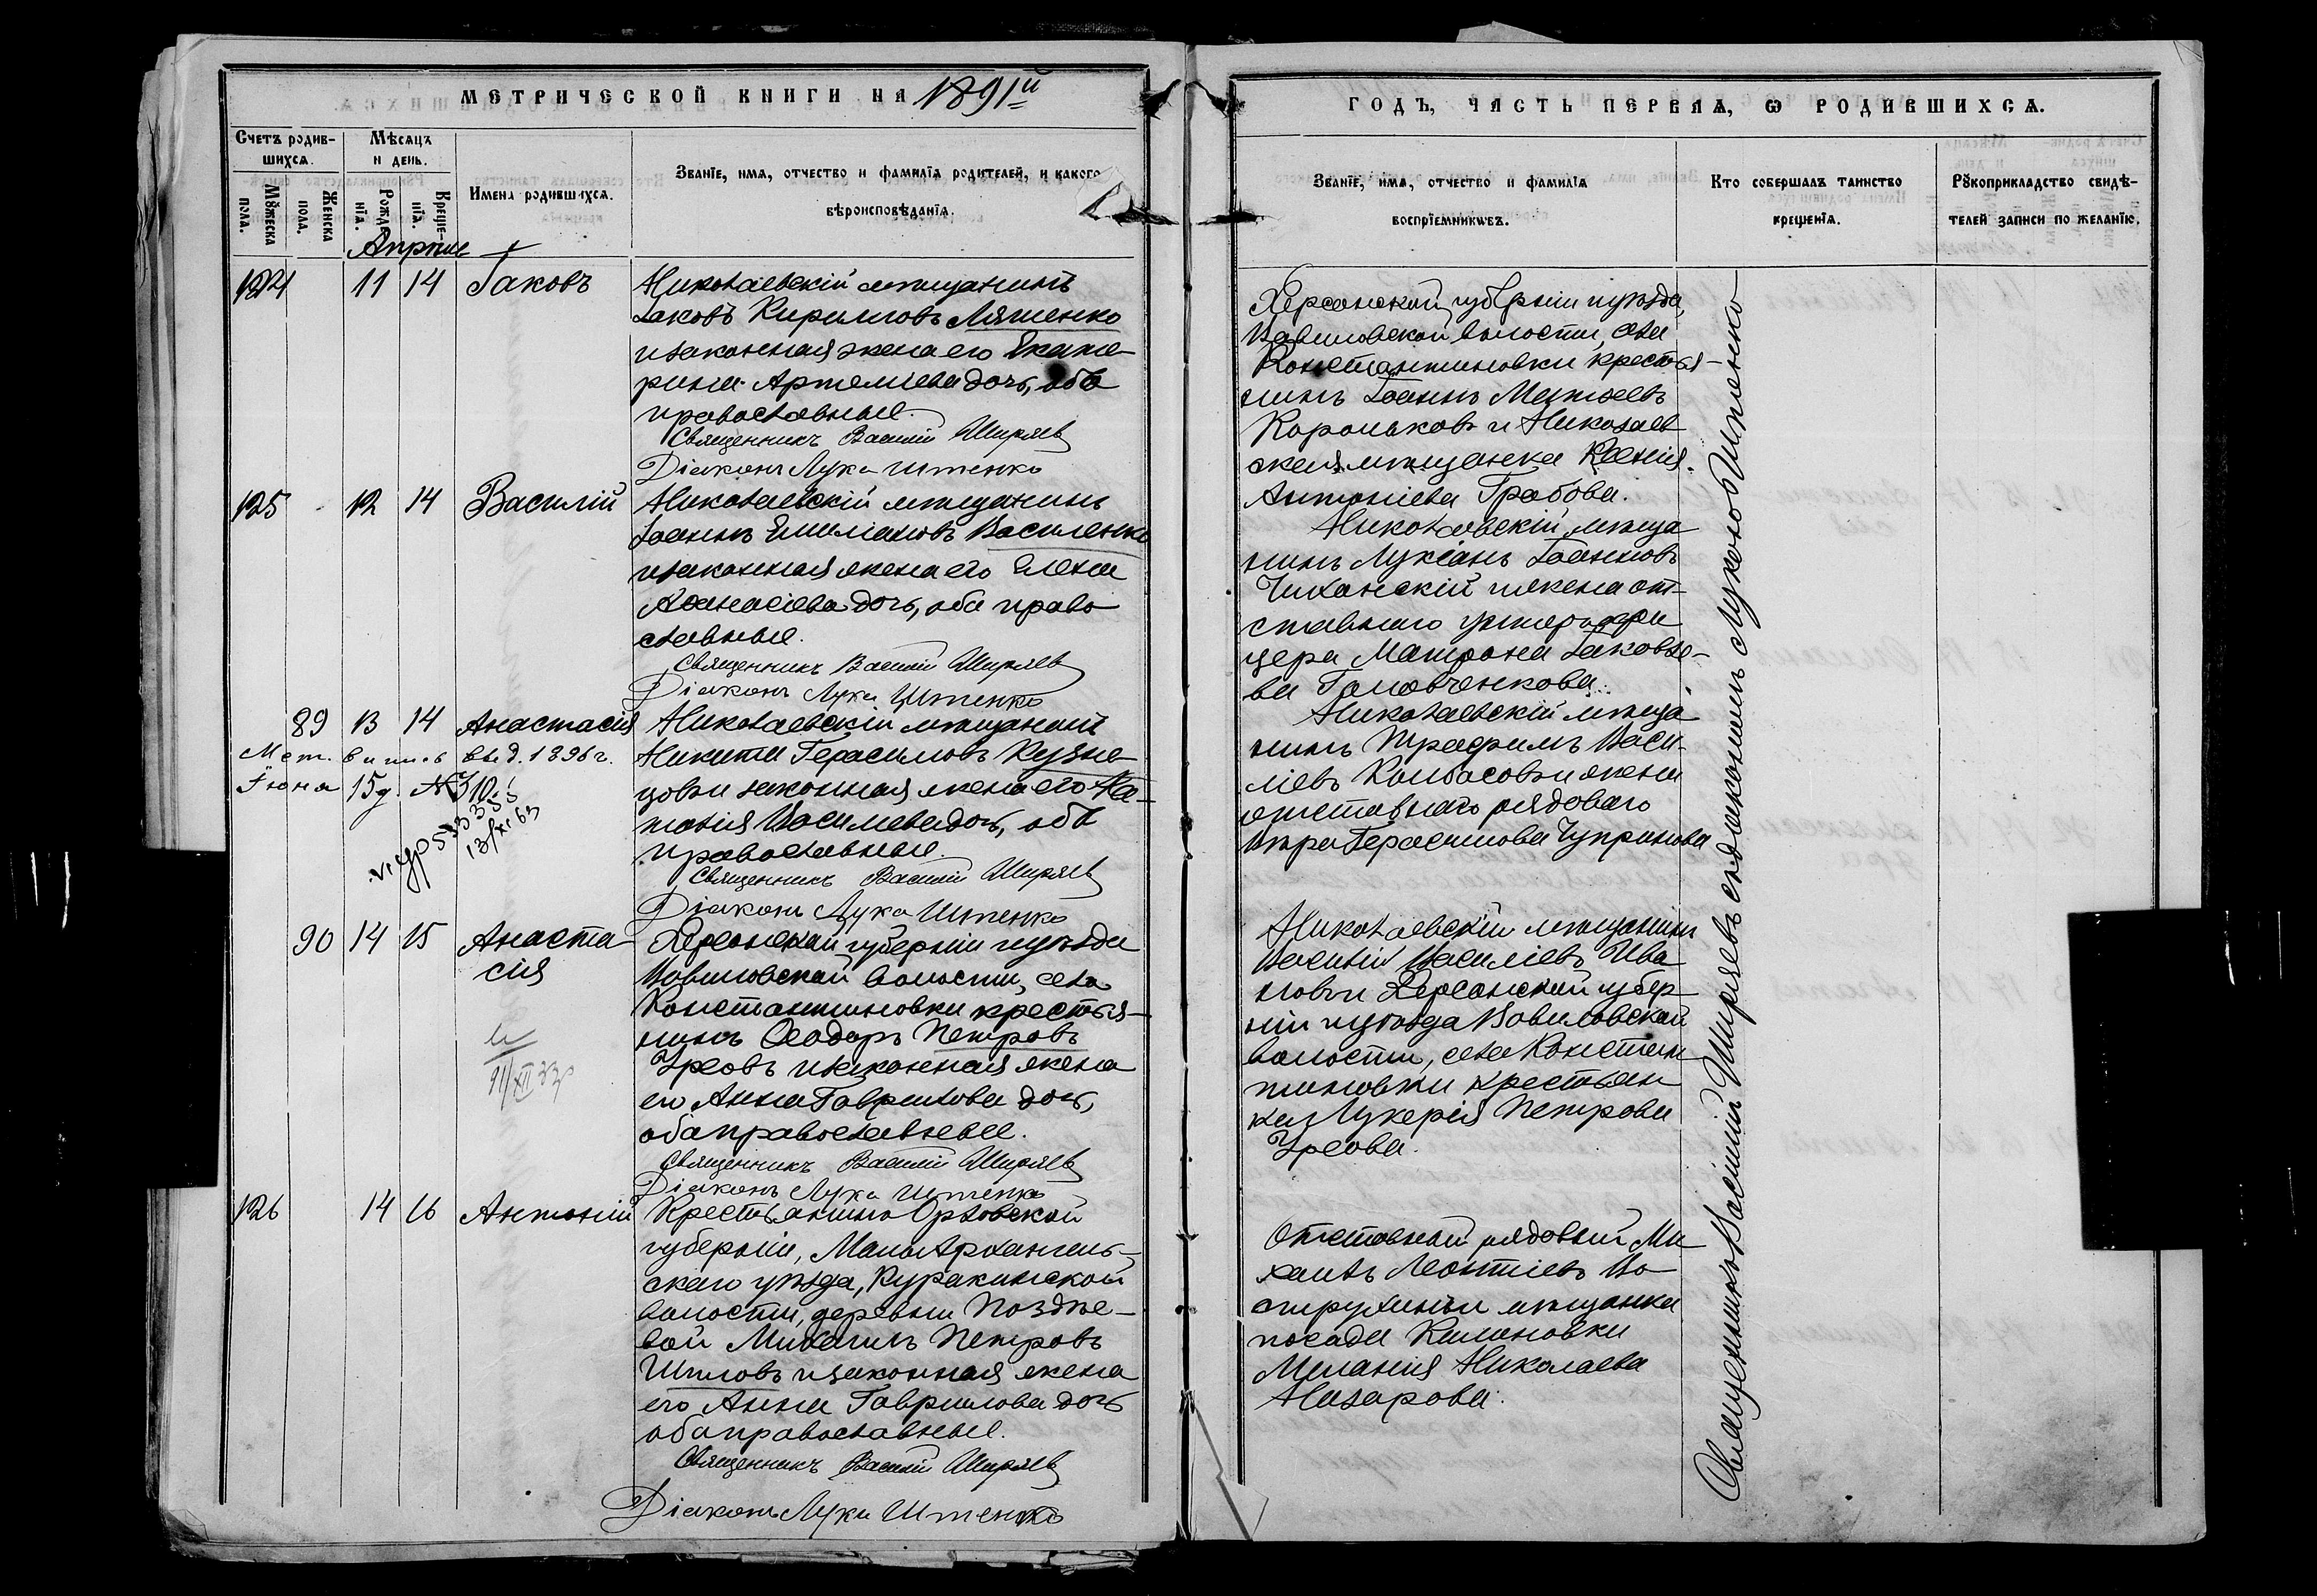 МЕТРИЧЕСКОЙ КНИГИ НА 1891й
Счетъ родив-
шихсѧ.
Мѣсяцъ
и день.
Имена родившихсѧ.
Званїе, имѧ, отчество и фамилїѧ родителей, и какого
вѣроисповѣданїѧ.
Мꙋжеска
пола.
Женска
пола.
Рожде-
нїѧ.
Креще-
нїѧ.
Апрѣль
124 11 14 Іаковъ
Николаевскій мѣщанинъ
Іаковъ Кирилловъ Ляшенко
и законная жена его Екате-
рина Артеміева дочь, оба
православные.
Священникъ Василій Ширяевъ
Діаконъ Лука Ипенко
125 12 14 Василій
Николаевскій мѣщанинъ
Іоаннъ Емиліановъ Василенко
и законная жена его Елена
Аѳанасіева дочь, оба право
славные.
Священникъ Василій Ширяевъ
Діаконъ Лука Ипенко
89 13 14 Анастасія
Мет. выпись выд. 1896 г.
Іюна 15 д. №310.
13/XI 63
Николаевскій мѣщанинъ
Никита Герасимовъ Кузне-
цовъ и законная жена его На-
талія Василіева дочь, оба
православные.
Священникъ Василій Ширяевъ
Діаконъ Лука Ипенко
90 14 15 Анаста-
сія
Херсонской губерніи и уѣзда
Вавиловской волости, села
Константиновки крестья-
нинъ Ѳеодоръ Петровъ
Усовъ и законная жена
его Анна Гаврилова дочь,
оба православные.
Священникъ Василій Ширяевъ
Діаконъ Лука Ипенко
126 14 16 Антоній
Крестьянинъ Орловской
губерніи, Малоархангель-
скаго уѣзда, Куракинской
волости, деревни Поздѣе-
вой Михаилъ Петровъ
Шиловъ и законная жена
его Анна Гаврилова дочь
оба православные.
Священникъ Василій Ширяевъ
Діаконъ Лука Ипенко
ГОДЪ, ЧАСТЬ ПЕРВАѦ, Ѡ РОДИВШИХСѦ.
Званїе, имѧ, отчество и фамилїѧ
воспрїемниковъ.
Кто совершалъ таинство
крещенїѧ.
Рꙋкоприкладство свидѣ-
телей записи по желанїю.
Херсонской губерніи и уѣзда,
Вавиловской волости, села
Константиновки крестья-
нинъ Іоаннъ Матѳеевъ
Корольковъ и Николаев
ская мѣщанка Ксенія
Антоніева Грабова.
Николаевскій мѣща
нинъ Лукіанъ Іоанновъ
Чиханскій и жена от-
ставного унтеръ офи
цера Матрона Іаковле-
ва Головченкова.
Николаевскій мѣща
нинъ Трофимъ Васи-
ліевъ Колбасовъ и жена
отставнаго рядоваго
Герасимова Чупринова
Николаевскій мѣщанинъ
Василій Василіевъ Ива
новъ и Херсонской губер
ніи и уѣзда Вавиловской
волости, села Констан
тиновки крестьян
ка Лукерія Петрова
Усова.
Отставной рядовый Ми
хаилъ Леонтіевъ Во
струхинъ и мѣщанка
посада Калиновки
Меланія Николаева
Назарова.
Священникъ Василій Ширяевъ съ діакономъ Лукою Ипенко